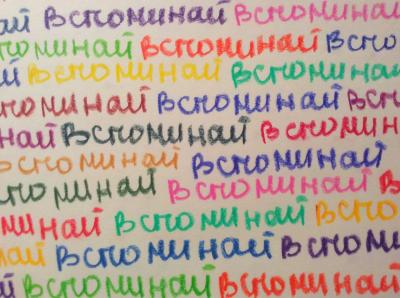 ай вспоминай вспоминай
поминай вспоминай вспо
й вспоминай вспоминай
поминай вспоминай всп
инай вспоминай вспомин
вспоминай вспоминай
споминай вспоминай в
оминай вспоминай вспо
най вспоминай вспоми
й вспоминай вспоминай